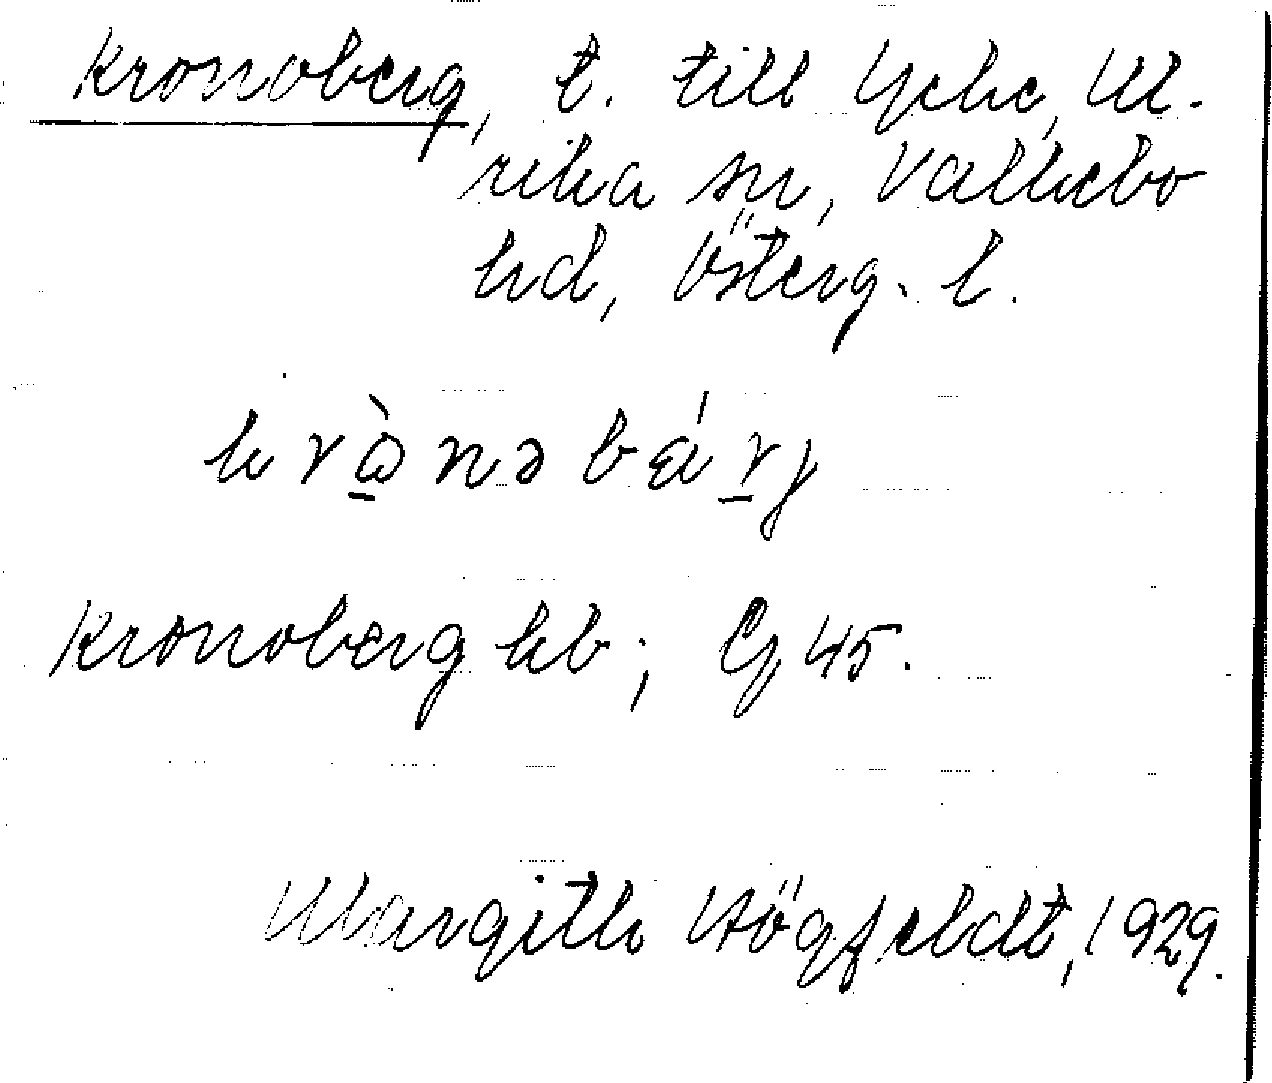 Kronoberg, t. till Ycke, Ul-
rika sn, Valkebo
hd, Österg. l.
krɷ̀nəbǽrj
Kronoberg kb; Gj 45.
Margith Högfeldt, 1929.